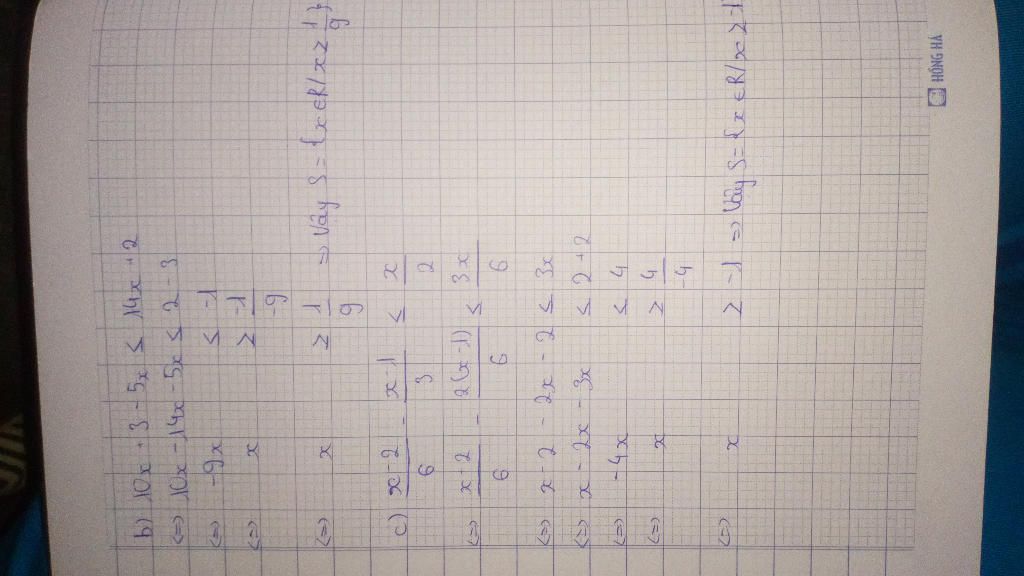 b) 10x + 3 - 5x ≤ 14x + 2
<=> 10x - 14x - 5x ≤ 2 - 3
<=> -9x ≤ -1
<=> x ≥ -1/-9
<=> x ≥ 1/9 => Vậy S = {x ∈ R/x ≥ 1/9};
c) x-2/6 - x-1/3 ≤ x/2
<=> x-2/6 - 2(x-1)/6 ≤ 3x/6
<=> x - 2 - 2x - 2 ≤ 3x
<=> x - 2x - 3x ≤ 2 + 2
<=> -4x ≤ 4
<=> x ≥ 4/-4
<=> x ≥ -1 => Vậy S = {x ∈ R/x ≥ -1
HỒNG HÀ